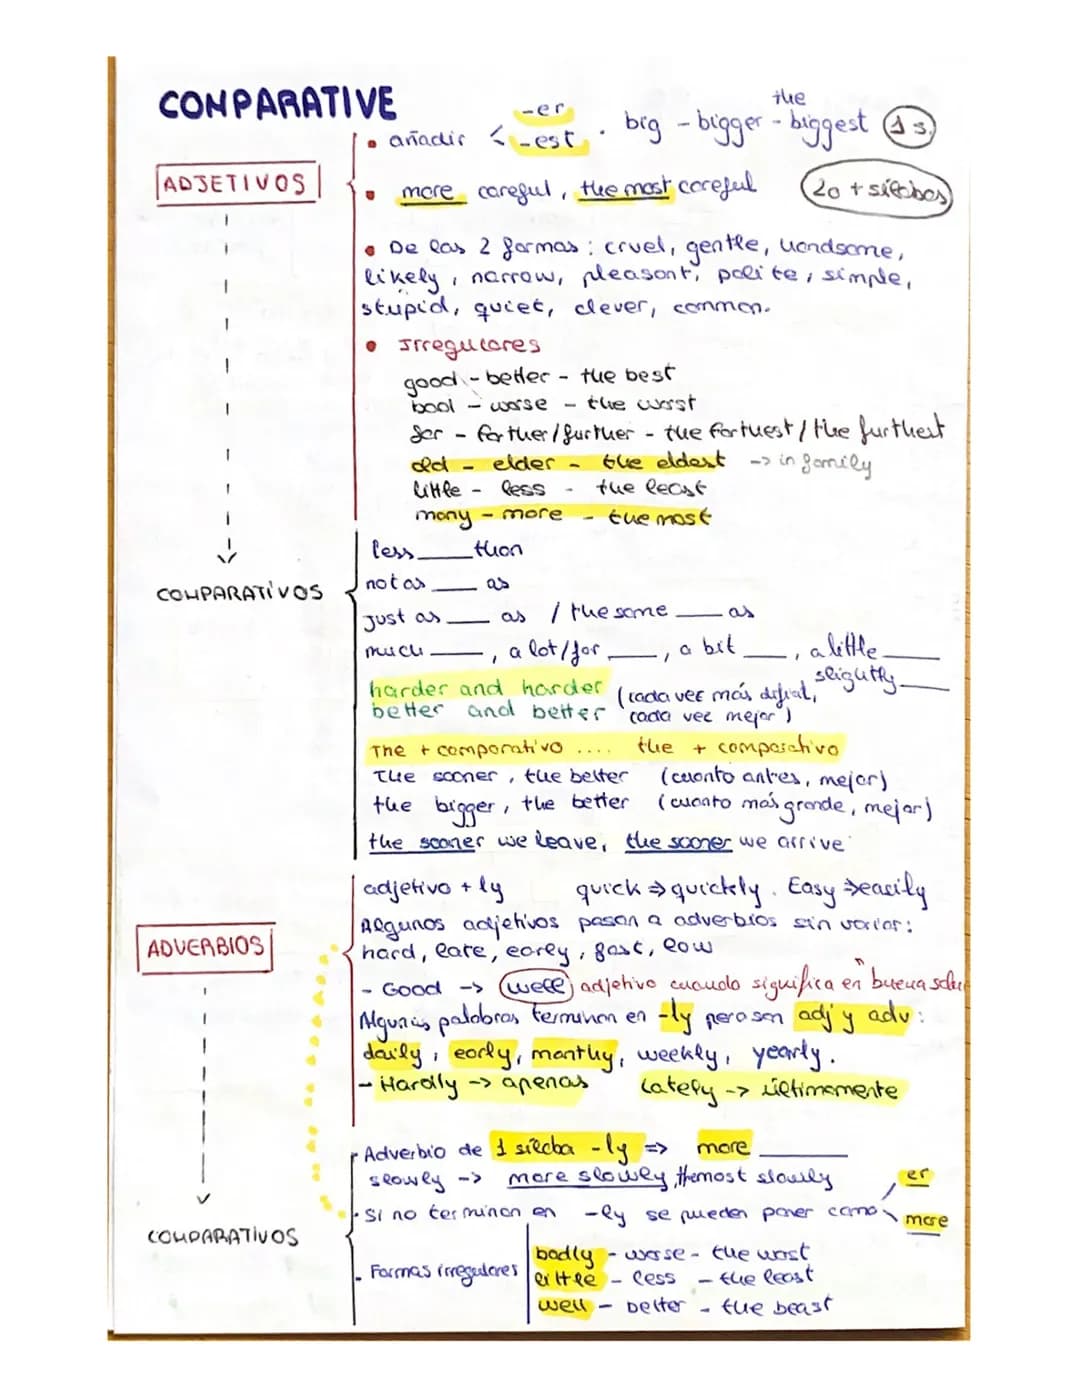 COMPARATIVE
• añadir < -er -est . big - bigger - the biggest (1 s.)
ADJETIVOS
• more careful, the most careful (2 o + sílabas)
• De las 2 formas: cruel, gentle, handsome,
likely, narrow, pleasant, polite, simple,
stupid, quiet, clever, common.
• Irregulares
good - better - the best
bad - worse - the worst
far - farther/further - the farthest/the furthest
old - elder - the eldest -> in family
little - less - the least
many - more - the most
COMPARATIVOS
less ___ than
not as ___ as
just as ___ as / the same ___ as
much ___, a lot/far ___, a bit ___, a little ___
slightly ___
harder and harder (cada vez más difícil,
better and better cada vez mejor)
The + comparativo .... the + comparativo
The sooner, the better (cuanto antes, mejor)
the bigger, the better (cuanto más grande, mejor)
the sooner we leave, the sooner we arrive
ADVERBIOS
adjetivo + ly quick => quickly. Easy => easily
Algunos adjetivos pasan a adverbios sin variar:
hard, late, early, fast, low
- Good -> (well) adjetivo cuando significa en "buena salu
Algunas palabras terminan en -ly pero son adj y adv:
daily, early, monthy, weekly, yearly.
- Hardly -> apenas Lately -> últimamente
COMPARATIVOS
• Adverbio de 1 sílaba -ly => more ___
slowly -> more slowly, the most slowly
• Si no terminan en -ly se pueden poner como er more
• Formas irregulares
badly - worse - the worst
little - less - the least
well - better - the beast